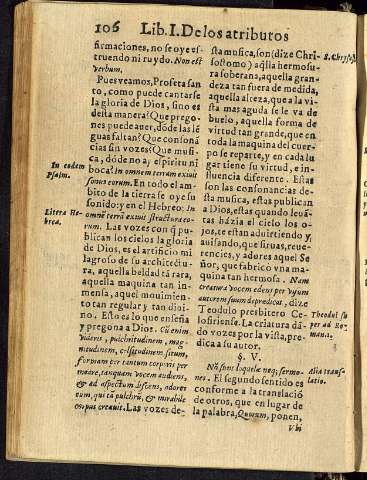 106 Lib. I. De los atributos
firmaciones, no se oye es-
truendo ni ruydo. Non est
verbum.
Pues veamos, Profeta san-
to, como puede cantarse
la gloria de Dios, sino es
desta manera? Que prego-
nes puede auer, dõde las lẽ
guas faltan? Que consonã
cias sin vozes? Que musi-
ca, dõde no ay espiritu ni
boca? In omnem terram exiuit
sonus eorum. En todo el am-
bito de la tierra se oye su
sonido: y en el Hebreo: In
omnẽ terrã exiuit structura eo-
rum. Las vozes con q̃ pu-
blican los cielos la gloria
de Dios, es el artificio mi
lagroso de su architectu-
ra, aquella beldad tã rara,
aquella maquina tan in-
mensa, aquel mouimien-
to tan regular y tan diui-
no. Esto es lo que enseña
y pregona a Dios. Cũ enim
videris, pulchritudinem, mag-
nitudinem, celsitudinem, situm,
formam per tantum corporis per
meare, tanquam vocem audiens,
& ad aspectum discens, adores
eum, qui tã pulchrũ, & mirabile
corpus creauit. Las vozes de-
In eodem
Psalm.
Litera He-
brea.
sta musica, son (dize Chri-
sostomo) aq̃lla hermosu-
ra soberana, aquella gran-
deza tan fuera de medida,
aquella alteza, que a la vi-
sta mas aguda se le va de
buelo, aquella forma de
virtud tan grande, que en
toda la maquina del cuer-
po se reparte, y en cada lu
gar tiene su virtud, e in-
fluencia diferente. Estas
son las consonancias de-
sta musica, estas publican
a Dios, estas quando leuã-
tas házia el cielo los o-
jos, te estan aduirtiendo y
auisando, que siruas, reue-
rencies, y adores aquel Se
ñor, que fabricò vna ma-
quina tan hermosa. Nam
creatura vocem edens per visum
autorem suum depredicat, dize
Teodulo presbitero Ce-
losiriense. La criatura dã-
do vozes por la vista, pre-
dica a su autor.
§. V.
Nõ sunt loquelæ neq; sermo-
nes. El segundo sentido es
conforme a la translació
de otros, que en lugar de
la palabra, Quorum, ponen,
Vbi
S. Chrysost.
Theodul su
per ad Ro-
mana.
Alia trans-
latio.